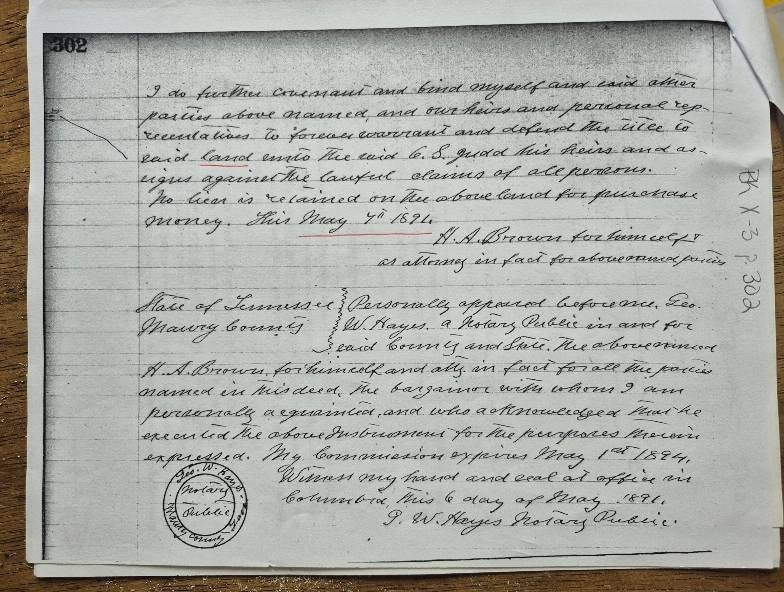 302
I do further covenant and bind myself and said other
parties above named, and our heirs and personal rep-
resentatives to forever warrant and defend the title to
said land unto the said C. S. Judd his heirs and as-
signs against the lawful claims of all persons.
No lien is retained on the above land for purchase
money. This May 7th 1891.
H. A. Brown for himself &
as attorney in fact for above named parties
State of Tennessee
Maury County
Personally appeared before me, Geo.
W. Hayes, a Notary Public in and for
said County and State, the above named
H. A. Brown, for himself and atty in fact for all the parties
named in this deed, the bargainor with whom I am
personally acquainted, and who acknowledged that he
executed the above Instrument for the purposes therein
expressed. My Commission expires May 1st 1894.
Witness my hand and seal at office in
Columbia, this 6 day of May 1891.
G. W. Hayes Notary Public.
Geo. W. Hayes
Notary
Public
Maury County
Bk X-3 P 302